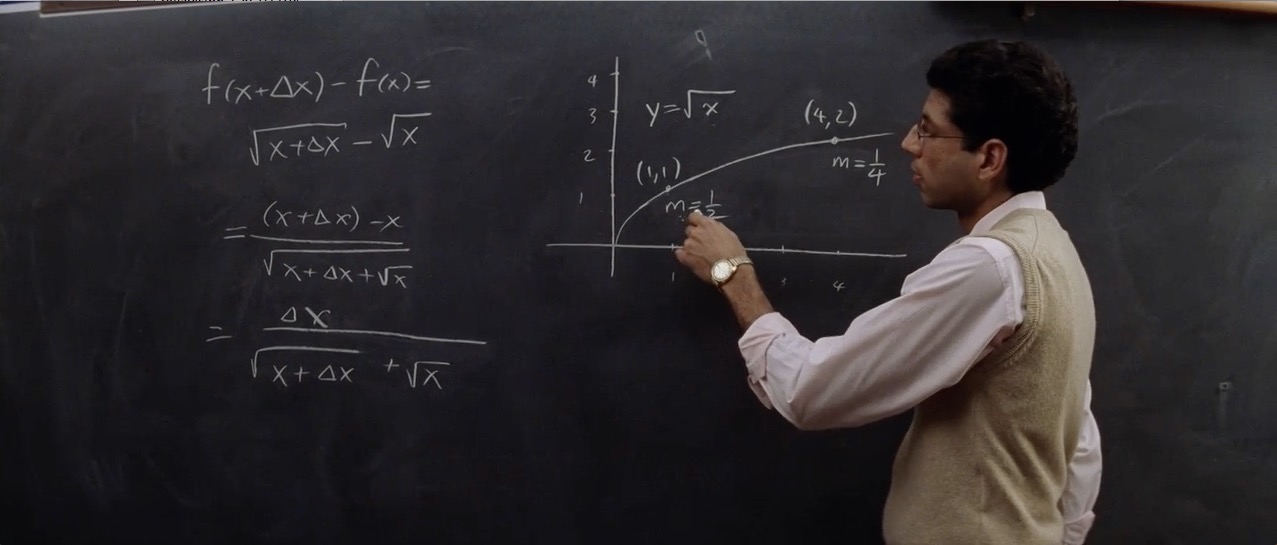 f(x+Δx)-f(x)=
√x+Δx - √x
= (x+Δx)-x / √x+Δx+√x
= Δx / √x+Δx + √x
9
4
3
2
1
y=√x
(4,2)
m=1/4
(1,1)
m=1/2
1 3 4